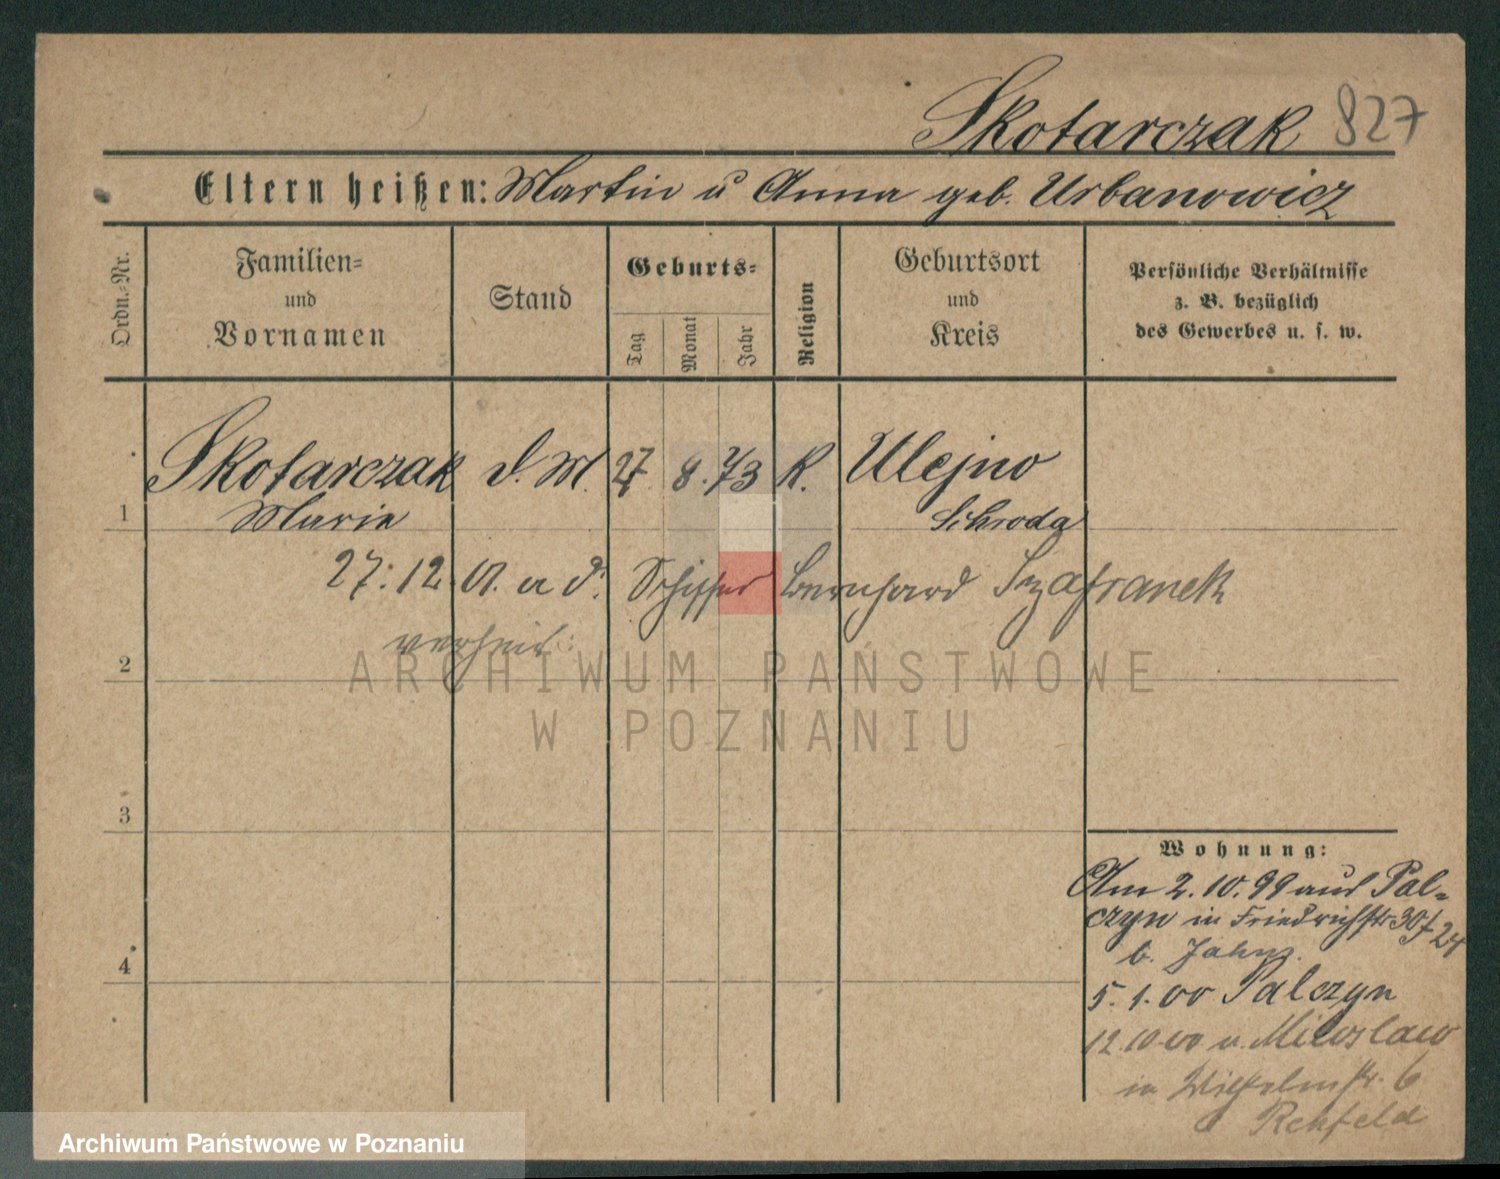 Skotarczak 827
Eltern heißen: Martin u Anna geb. Urbanowicz
Ordn.-Nr.
Familien-
und
Vornamen
Stand
Geburts-
Tag
Monat
Jahr
Religion
Geburtsort
und
Kreis
Persönliche Verhältnisse
z. B. bezüglich
des Gewerbes u. s. w.
1 Skotarczak d. M. 27 8. 73 K. Ulejno
Marie Schroda
27. 12. 01. a d. Schiffer Bernhard Szafranek
2 verheir:
ARCHIWUM PAŃSTWOWE
W POZNANIU
3
Wohnung:
Am 2. 10. 99 aus Pal-
czyn in Friedrichstr 30 f 24
4 b. Jahns.
5. 1. 00 Palczyn
12 10 00 v. Miloslaw
in Wilhelmstr. 6
Rehfeld
Archiwum Państwowe w Poznaniu